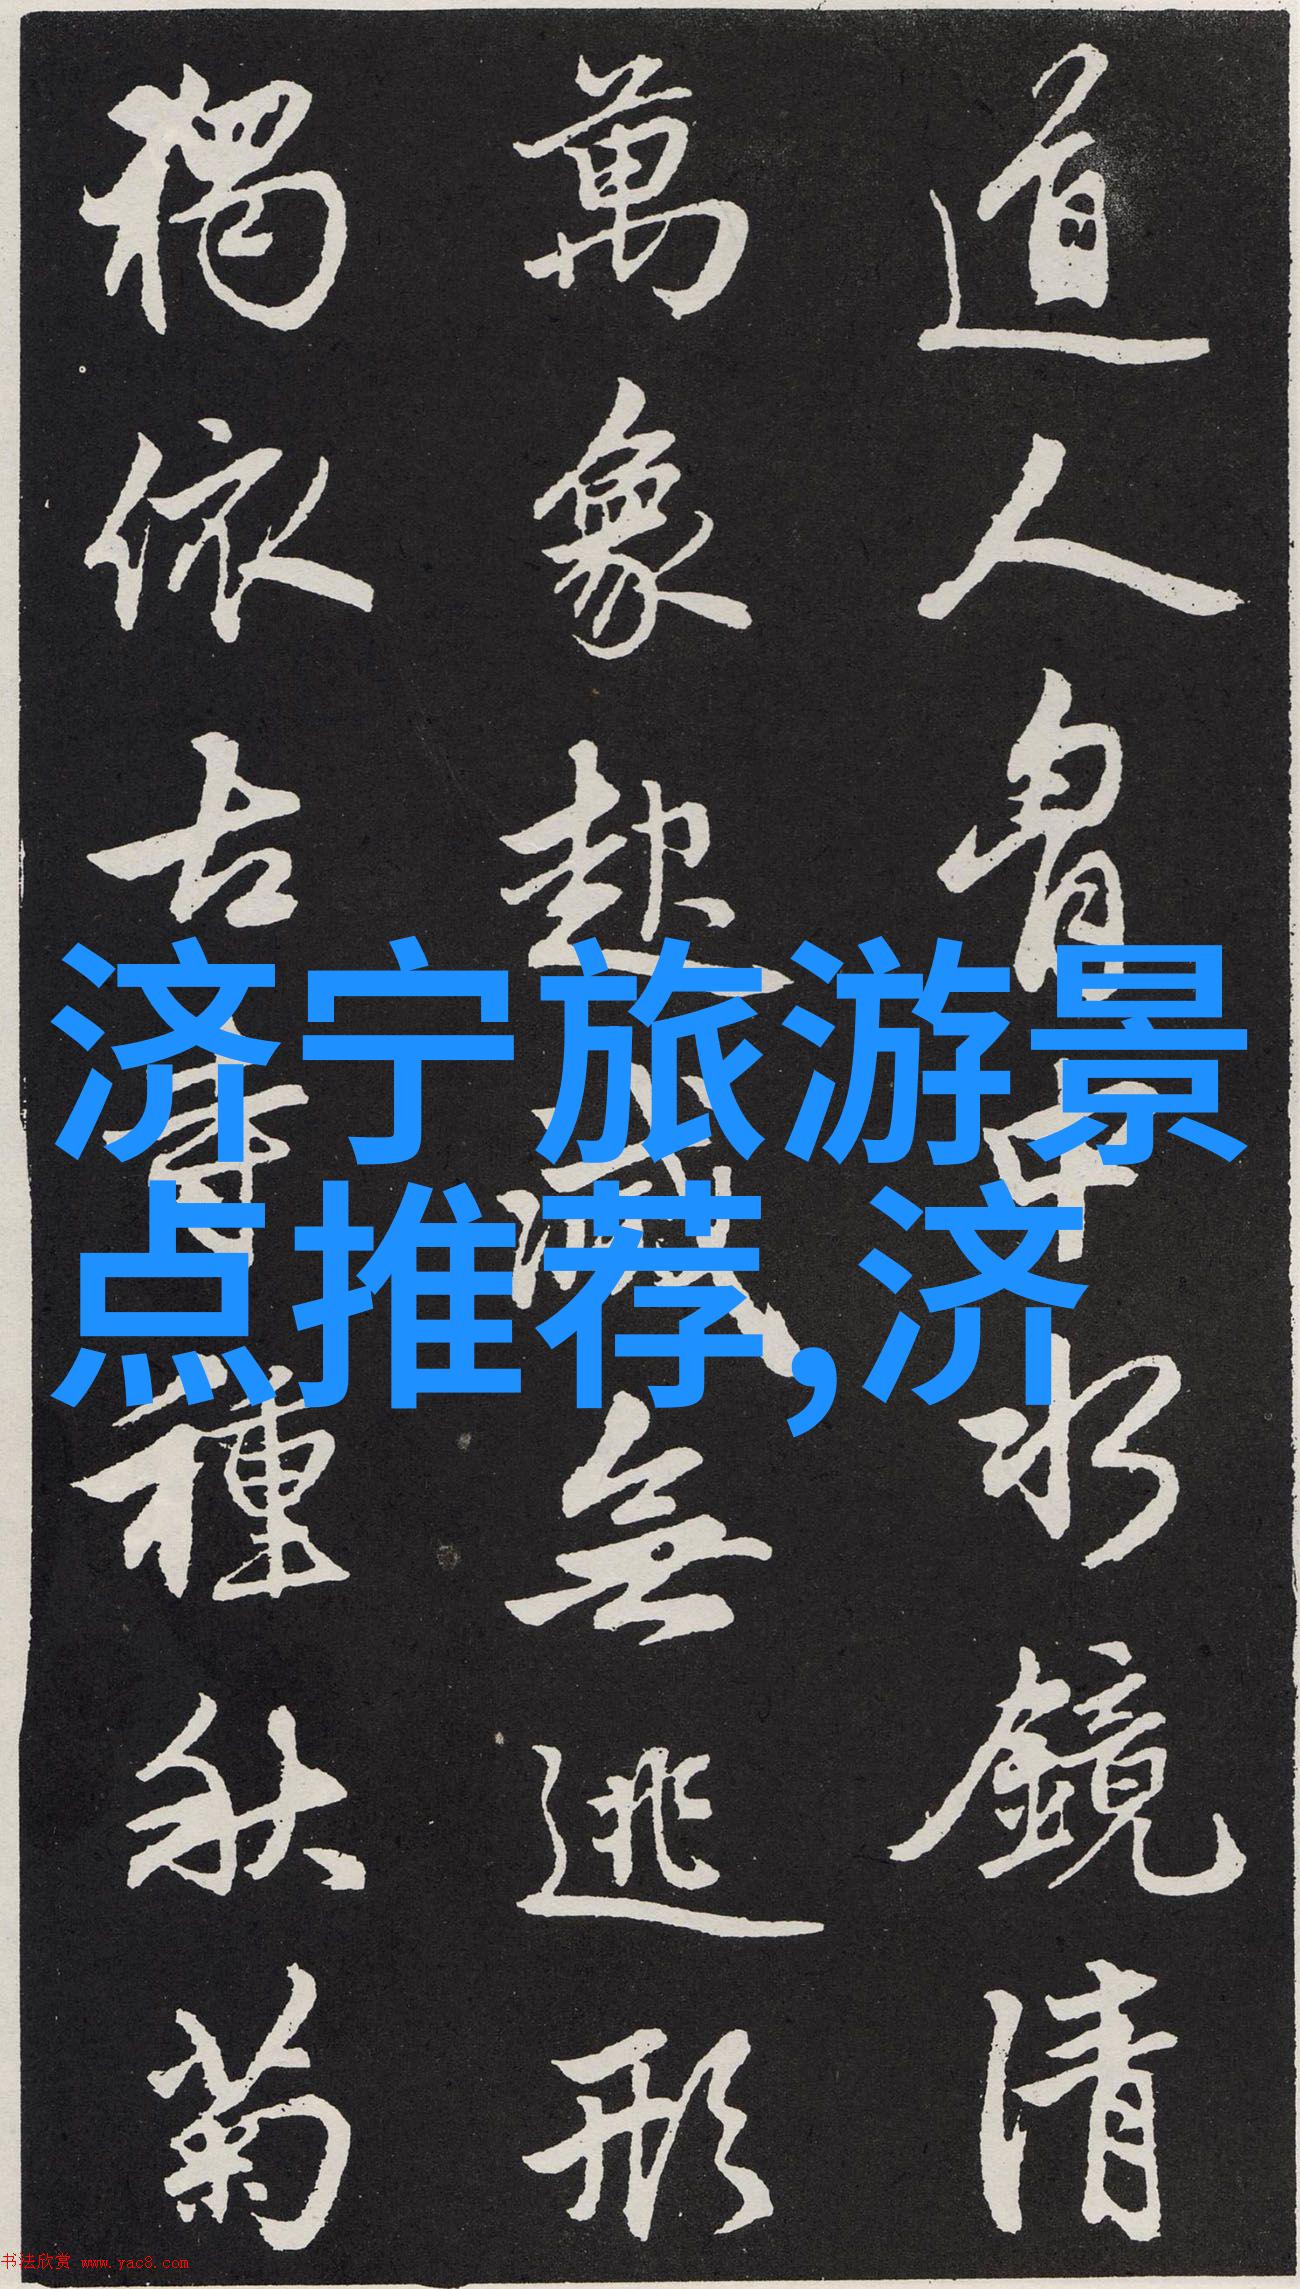 道人胷中水鏡清
萬象起滅無逃形
獨依古寺種秋菊
济宁旅游景
点推荐,济
书法欣赏 www.yac8.com